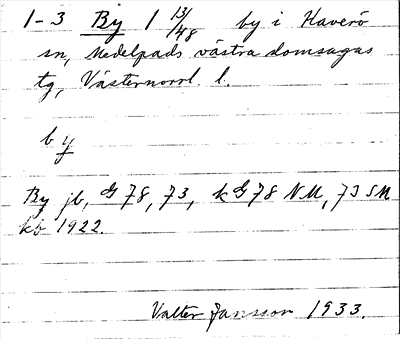 1-3 By 1 13/48 by i Haverö
sn, Medelpads västra domsagas
tg, Västernorrl. l.
by
By jb, G 78, 73, k G 78 NM, 73 SM
kb 1922.
Valter Jansson 1933.